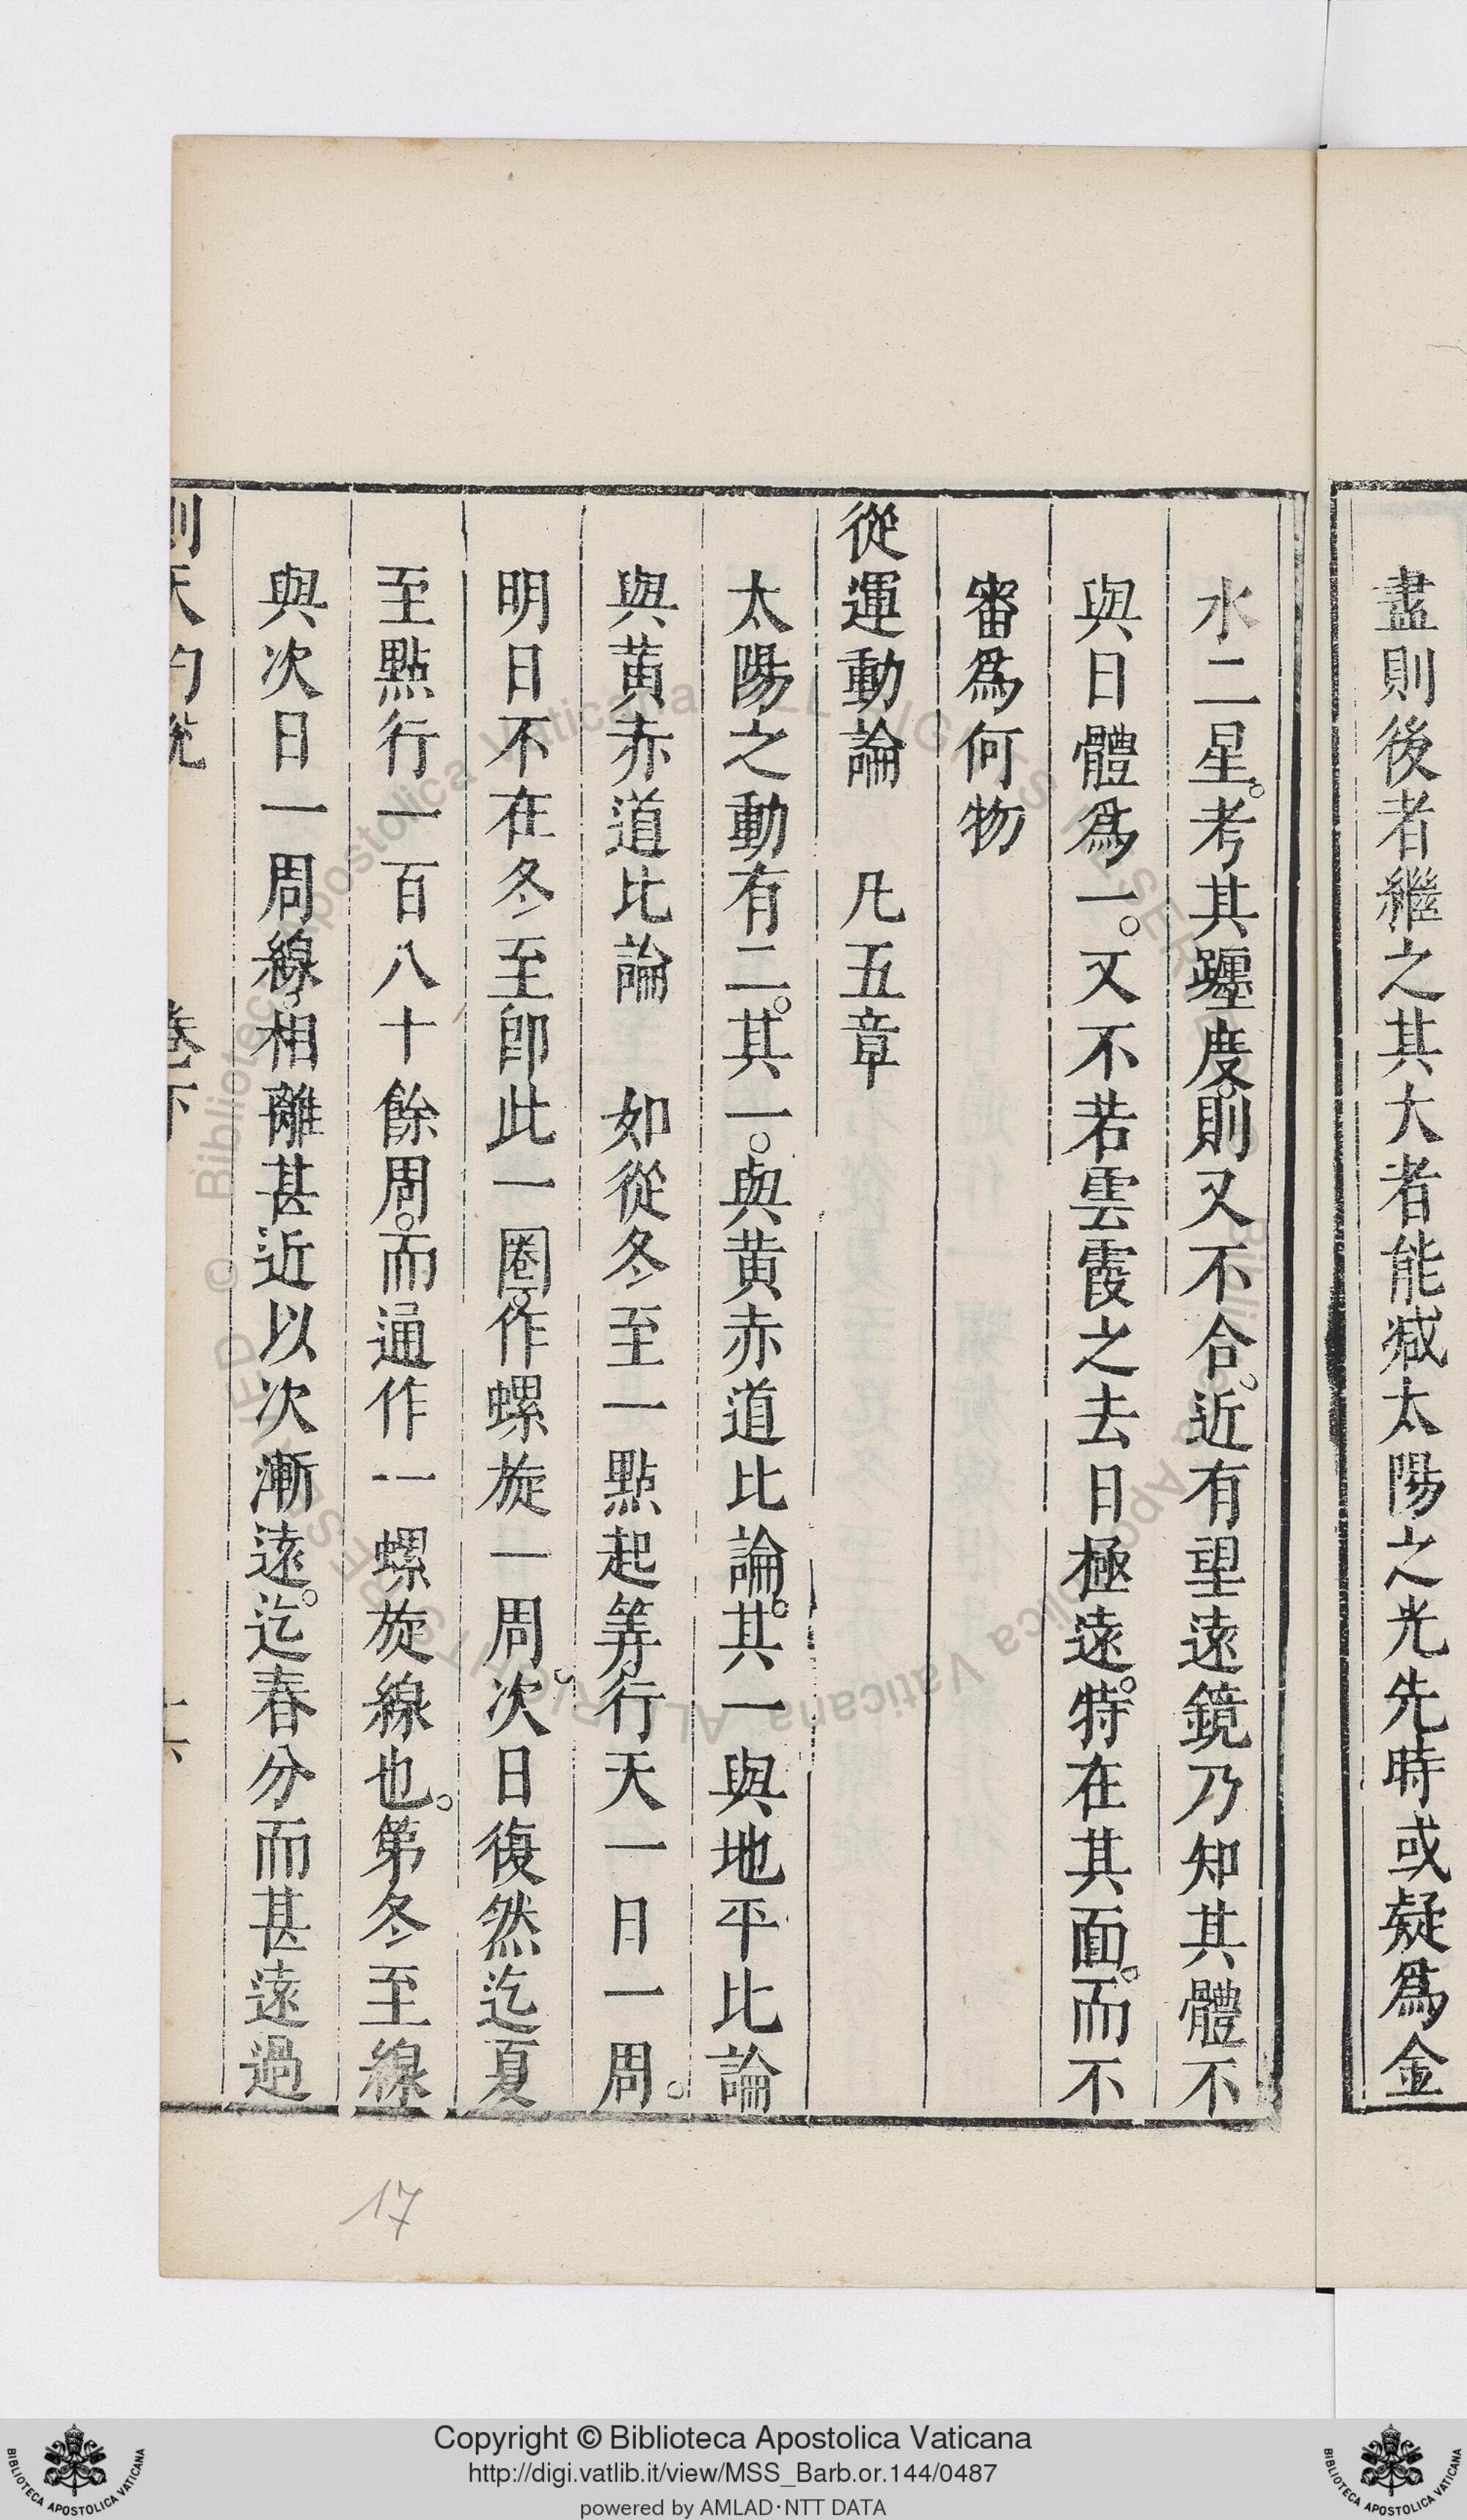 盡則後者繼之其大者能减太陽之光先時或疑爲金
水二星。考其躔度。則又不合。近有望遠鏡乃知其體不
與日體爲一。又不若雲霞之去日極遠。特在其面。而不
審爲何物
從運動論　凡五章
太陽之動有二。其一。與黄赤道比論。其一與地平比論
與黄赤道比論　如從冬至一點起筭。行天一日一周。
明日不在冬至卽此一圈。作螺旋一周。次日復然迄夏
至點行一百八十餘周。而通作一螺旋線也。第冬至線
與次日一周線。相離甚近以次漸遠。迄春分而甚遠過
測天約說　卷下
17
Copyright © Biblioteca Apostolica Vaticana
http://digi.vatlib.it/view/MSS_Barb.or.144/0487
powered by AMLAD·NTT DATA
BIBLIOTECA APOSTOLICA VATICANA
BIBLIOTECA APOSTOLICA VATICANA